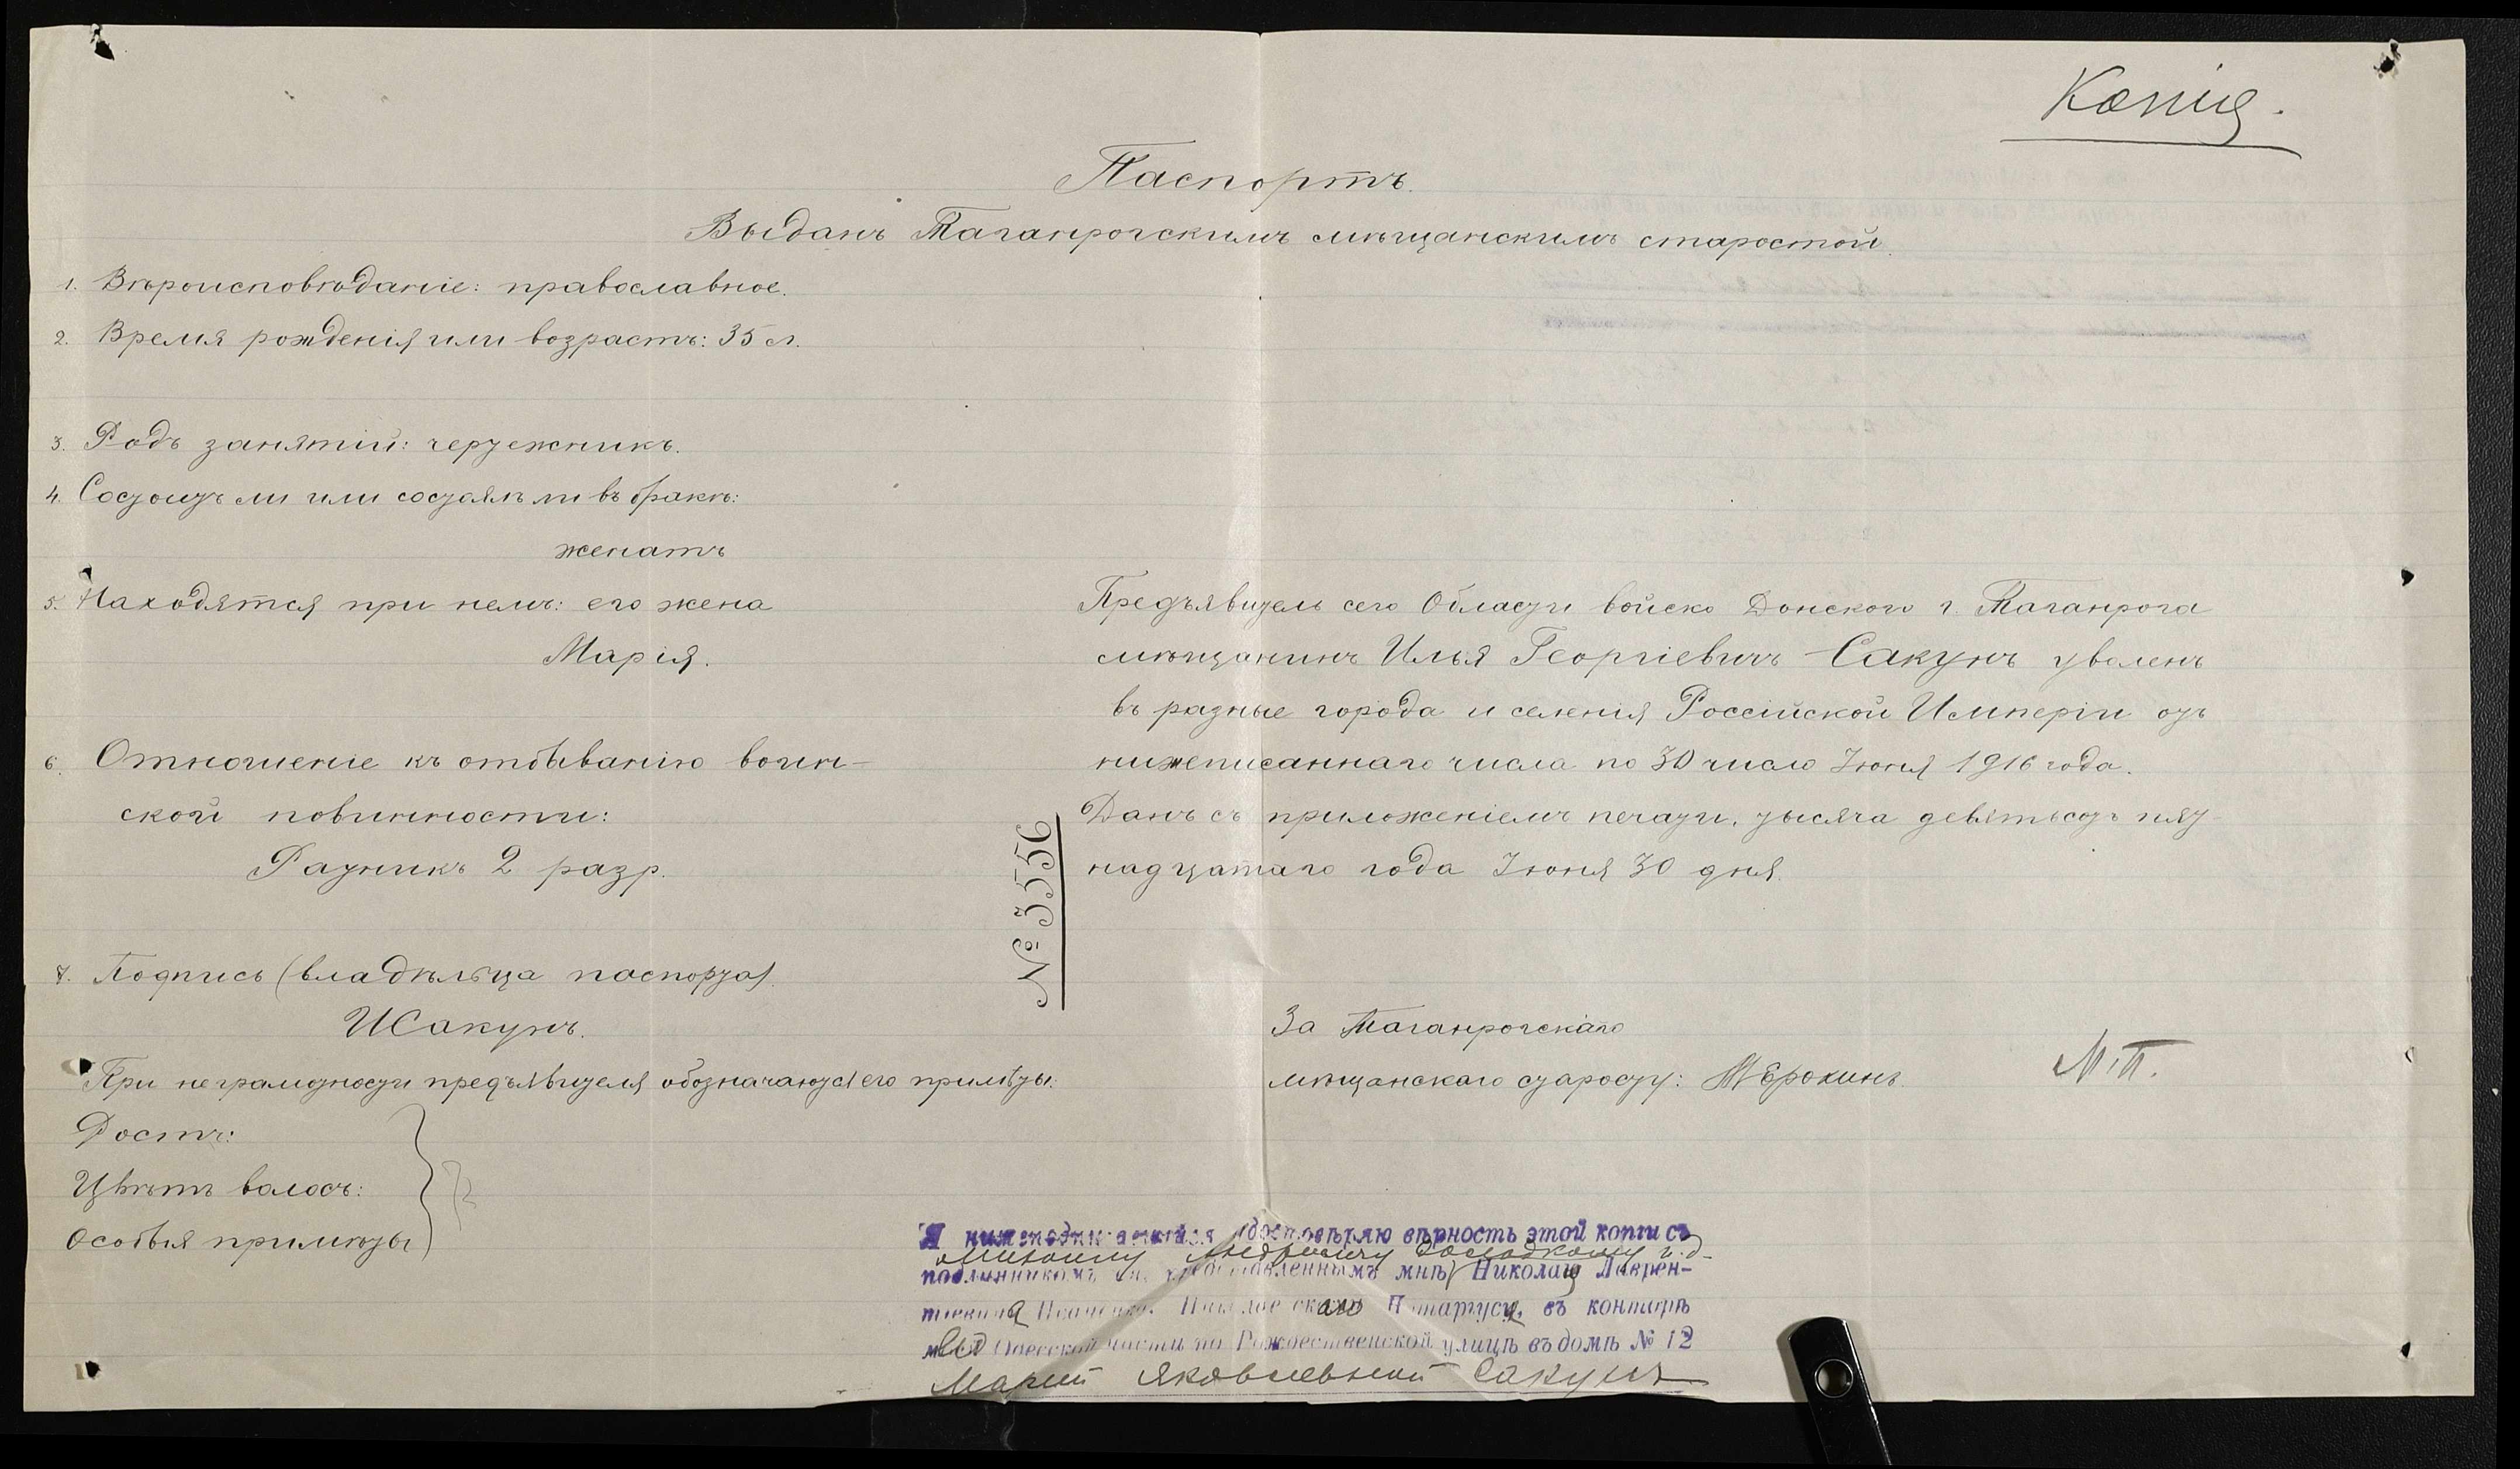 Копія.
Паспортъ.
Выданъ Таганрогскимъ мѣщанскимъ старостой.
1. Вѣроисповѣданіе: православное.
2. Время рожденія или возрастъ: 35 л.
3. Родъ занятій: чертежникъ.
4. Состоитъ ли или состоялъ ли въ бракѣ:
женатъ
5. Находятся при немъ: его жена
Марія.
6. Отношеніе къ отбыванію воин-
ской повинности:
Ратникъ 2 разр.
7. Подпись (владѣльца паспорта).
ИСакунъ.
При неграмотности предъявителя обозначаются его примѣты:
Ростъ:
Цвѣтъ волосъ:
Особыя примѣты
№ 3556
Предъявитель сего Области войска Донского г. Таганрога
мѣщанинъ Илья Георгіевичъ Сакунъ уволенъ
въ разные города и селенія Россійской Имперіи отъ
нижеписаннаго числа по 30 число Іюня 1916 года.
Данъ съ приложеніемъ печати, тысяча девятьсотъ пят-
надцатаго года Іюня 30 дня.
За Таганрогскаго
мѣщанскаго старосту: Ерохинъ.
М.П.
Я нижеподписавшійся удостовѣряю вѣрность этой копіи съ
подлинникомъ ея, представленнымъ мнѣ, Николаю Лаврен-
тьевича Нотаріуса, въ конторѣ
Одесской части по Рождественской улицѣ въ домѣ № 12
Маріей Яковлевной Сакунъ